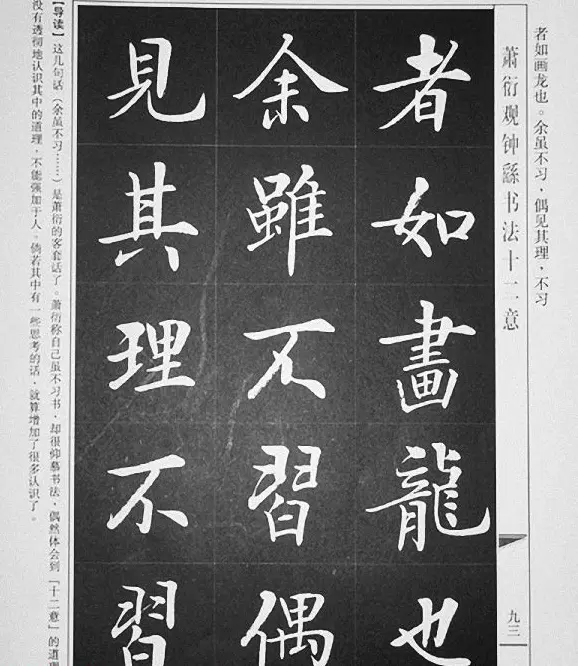 者如画龙也。余虽不习，偶见其理，不习
萧衍观钟繇书法十二意
九三
者如畫龍也
余雖不習偶
見其理不習
【导读】这几句话（余虽不习……）是萧衍的客套话了。萧衍称自己虽不习书，却很仰慕书法，偶然体会到「十二意」的道理
没有透彻地认识其中的道理，不能强加于人。倘若其中有一些思考的话，就算增加了很多认识了。